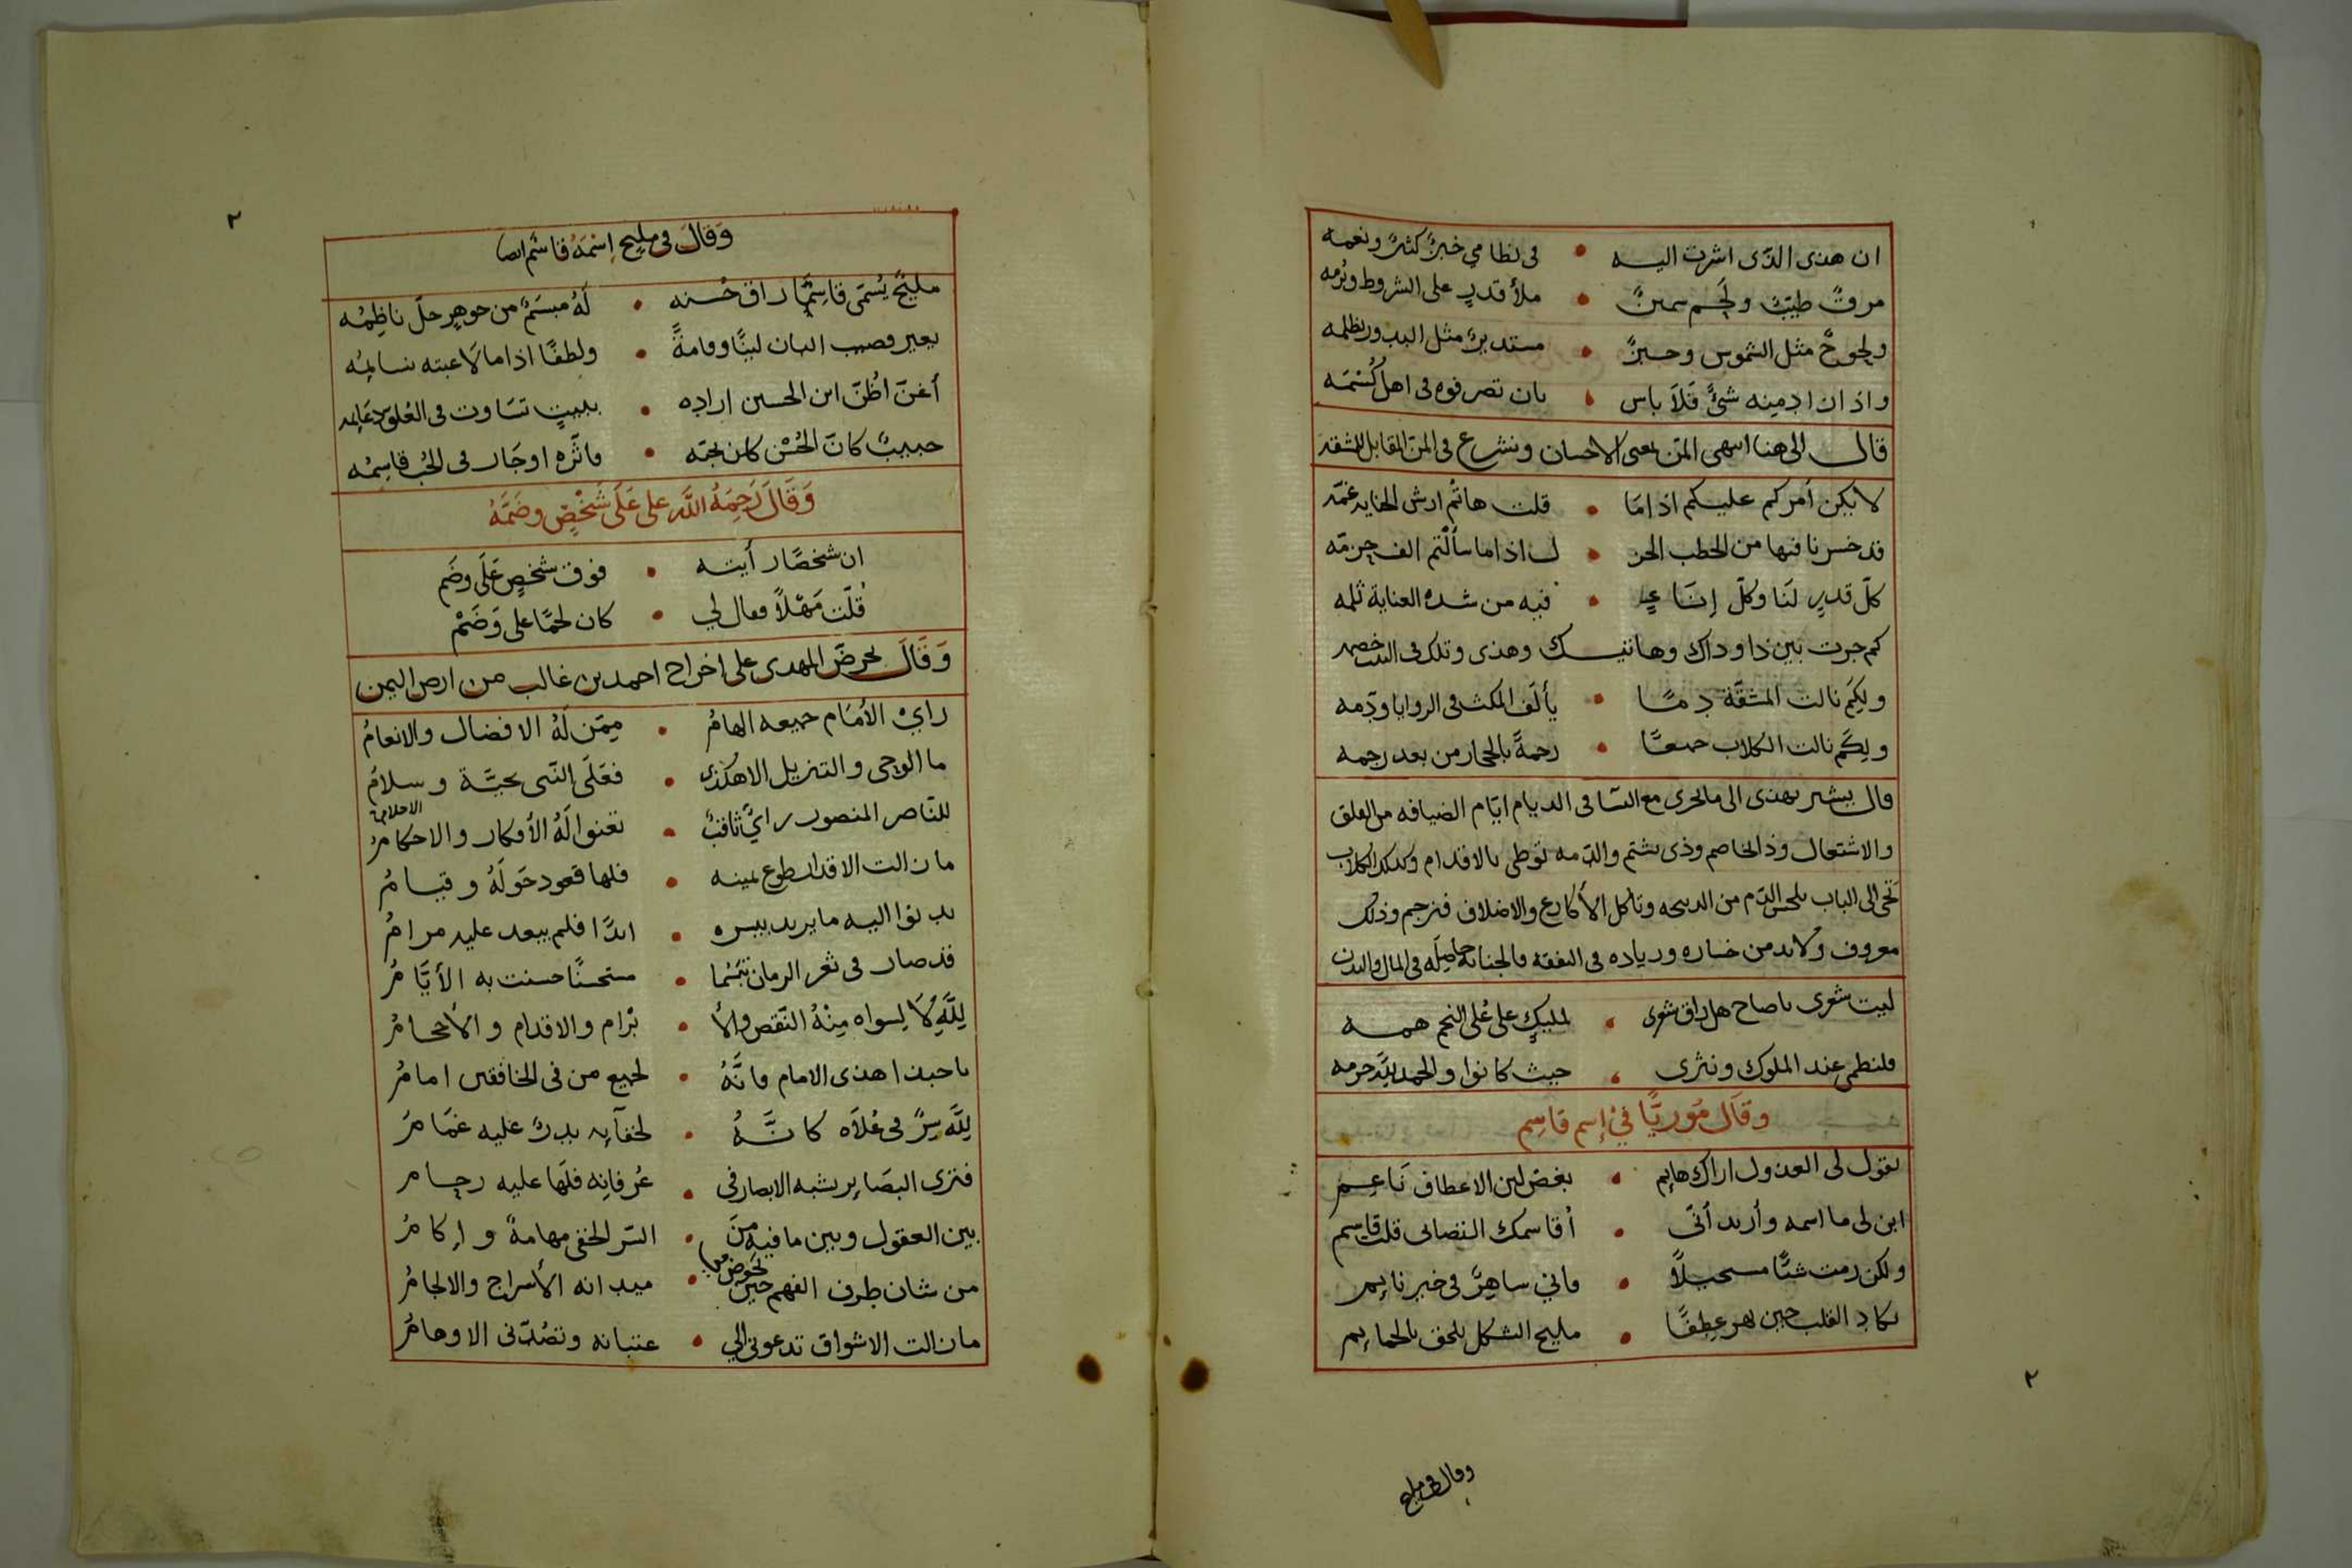 ان هذى الذى اشرت اليه • فى نظامي خبزٌ كثيرٌ ونعمه
مرقٌ طيّبٌ ولحم سمينٌ • ملأ قدرٍ على الشروط وبُرمه
ولحوحٌ مثل الشموس وخبزٌ • مستديرٌ مثل البدور بظلمه
واذ ان ادمنه شئٌ فلا باس • بان تصرفوه فى اهل
قال الى هنا انتهى المتن يعنى الاحسان ونشرع فى المتن المقابل للشقذ
لا يكن أمركم عليكم اذا مَا • قلت هاتُم ارش الجنايه غمّه
قد خسرنا فيها من الحطب الجز • ل اذا ما سألتم الف حزمه
كلّ قدرٍ لنا وكلّ إناءٍ • فيه من شده العناية ثلمه
كم جرت بين ذا وذاك وهاتيك وهذى وتلك فى البيت خصمه
ولكم نالت المشقّة • يألف المكث فى الزوايا وذمه
ولكم نالت الكلاب جميعًا • رحمةً بالحجار من بعد رجمه
قال يشير بهذى الى ما يجرى مع النسا فى الديام ايّام الضيافه من القلق
والاشتعال وذا يخاصم وذى يشتم والذمه توطى بالاقدام وكذلك الكلاب
تجى الى الباب يلحس الدم من الذبيحه وتاكل الأكارع والاضلاف فترجم وذلك
معروف ولا بد من خساره وزياده فى النفقه فالجنايه حاصله فى المال والبدن
ليت شعرى يا صاح هل راق شعرى • لمليكٍ على عُلى النجم همه
فلنظمى عند الملوك ونثرى • حيث كانوا والحمد لله حرمه
وقال مُوريًّا فيْ إسم قاسِم
يقول لى العذول اراك هايم • بغصن لين الاعطاف نَاعِم
ابن لى ما اسمه وأريد أنّى • أقاسمك التصابى قلت قاسم
ولكن رمت شيئًا مستحيلاً • فاني ساهرٌ فى خبر نايم
يكاد القلب حين يهز عطفًا • مليح الشكل يلحق بالحمايم
٢
وقال فى مليح
٢
وَقالَ فى مليح إسْمَهُ قاسَم ايضا
مليحٌ يُسَمّى قاسِمًا راق حُسنه • لهُ مبسَمٌ من جوهرٍ حلّ ناظِمُه
يعير قضيب البان لينًا وقامةً • ولطفًا اذا ما لاعبته نسايمُه
أغنّ اظنّ ابن الحسين اراده • ببيتٍ تساوت فى العُلوّ دعَايمه
حبيبٌ كانّ الحُسْن كان يحبّه • فاثّره او جَار فى الحُب قاسِمُه
وَقَالَ رَحِمَهُ الله على عَلَى شَخْصٍ وضَمَّهُ
ان شخصًا رأيته • فوق شخصٍ عَلَى وضَم
قُلت مَهْلاً فقال لي • كان لحمًا على وَضَمْ
وَقَالَ يحرضّ المهدى على اخراج احمد بن غالب من ارض اليمن
رايْ الأمَام جميعه الهامُ • ممِّن لهُ الافضال والانعامُ
ما الوحى والتنزيل الا هكذى • فعَلى النّبى تحيّة وسلامُ
للنّاصر المنصور رايٌ ثاقبٌ • تعنوا لهُ الأفكار والاحكامُ
الاحلام
ما زالت الاقدار طوع يمينه • فلها قعود حَولهُ وقيامُ
يدنوا اليه ما يريد بيسره • ابدًا فلم يبعد عليه مرامُ
قد صار فى ثغر الزمان تبسّما • مستحسنًا حسنت به الأيّامُ
لِلّهِ لا لِسواه مِنْهُ النّقص والأ • برام والاقدام والأحجامُ
يا حبذا هذى الامام فانّهُ • لجميع من فى الخافقين امامُ
لِلّه سرٌّ فى عُلاه كانّهُ • لخفآيه بدرٌ عليه غمَامُ
فترى البصَاير يشبه الابصار فى • عرفانه فلَها عليه زحامر
بين العقول وبين ما فيه مِنَ • السّر الخفى مهامهٌ واكامُ
من شان طرف الفهم حين يخوض فى • ميدانه الأسراج والالجامُ
ما زالت الاشواق تدعونى الي • عتباته وتصُدّنى الاوهامُ